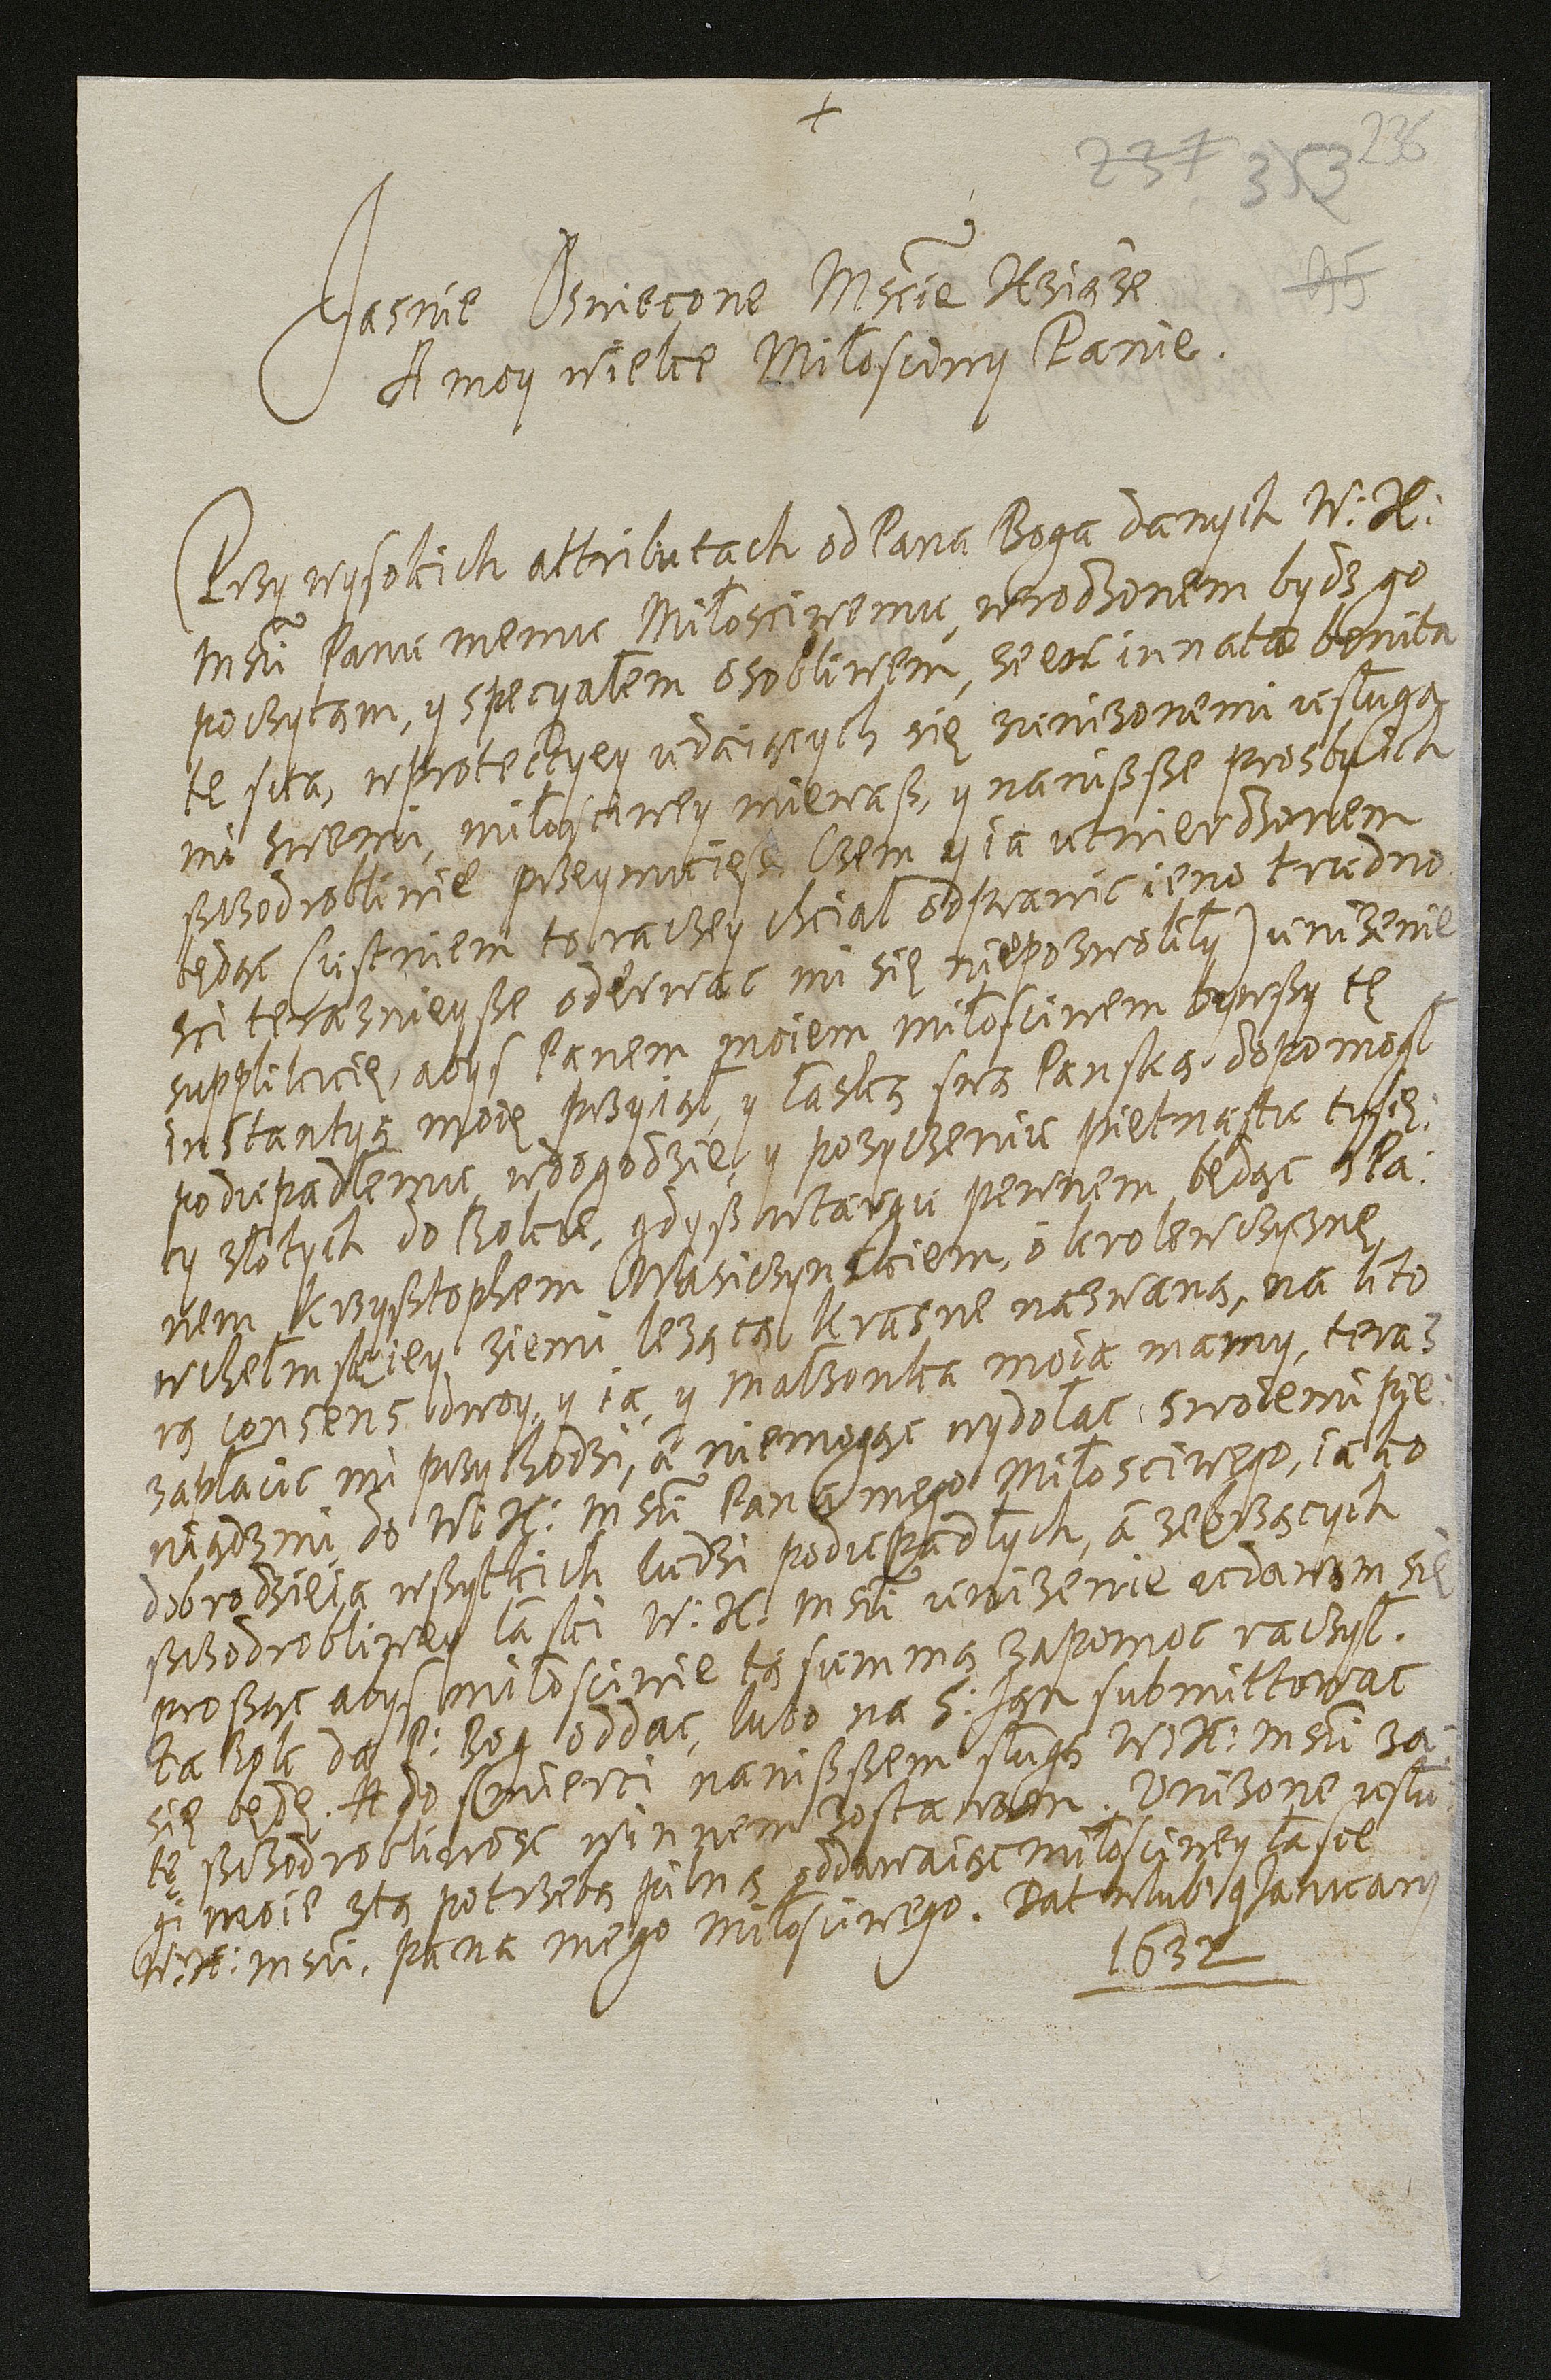 +
237 353 236
95
Jasnie Oswiecone Mscie Xsiąże
A moy wielce Miłosciwy Panie.
Przy wysokich attributach od Pana Boga danych W: X:
Mści Panu memu Miłosciwemu, wrodzonem bydz go
poczytam, y specyałem osobliwem, ze ex innata bonita
te sua, w protectyey udaiących się zunizonemi usługa
mi swemi, miłosciwey miewasz, y nanisze prosby ich
szczodrobliwie przeymuiesz. Czem y ia utwierdzonem
będąc (ustniem to raczey chciał odprawic ieno trudno
sci teraznieysze oderwac mi się niepozwoliły) unizenie
supplikuię, abys Panem moiem miłosciwem bywszy tę
instantyą moię przyiął, y łaską swą Panską dopomogł
podupadłemu, wdogodzie, y pozyczeniu pietnastu tysię:
cy złotych do Rolcu, gdysz w targu pewnem będąc s Pa:
nem Krzysztophem Wasiczynskiem, o krolewczyznę
w chełmskiey ziemi lezącą Krasne nazwaną, na kto
rą consens dwoy, y ia, y małzonka moia mamy, teraz
zapłacic mi przychodzi, a niemogąc wydołac swoiemi pie:
niądzmi, do W: X: Mści Pana mego Miłosciwego, iako
dobrodzieia wszytkich ludzi podupadłych, a zebrzących
szczodrobliwey łaski W: X: Mści unizenie udawam się
prosząc abys miłosciwie tą summą zapomoc raczył.
Ta Rok da P: Bog oddac, lubo na S: Jan submittowac
się będę. A do smierci naniszszem sługą W: X: Mści za
tę szczodrobliwosc winnem zostawam. Unizone usłu
gi moie zta potrzebą pilną oddawaiąc miłosciwey łasce
W: X: Mści. Pana mego miłosciwego. Dat w Lub: 9 Januarij
1632